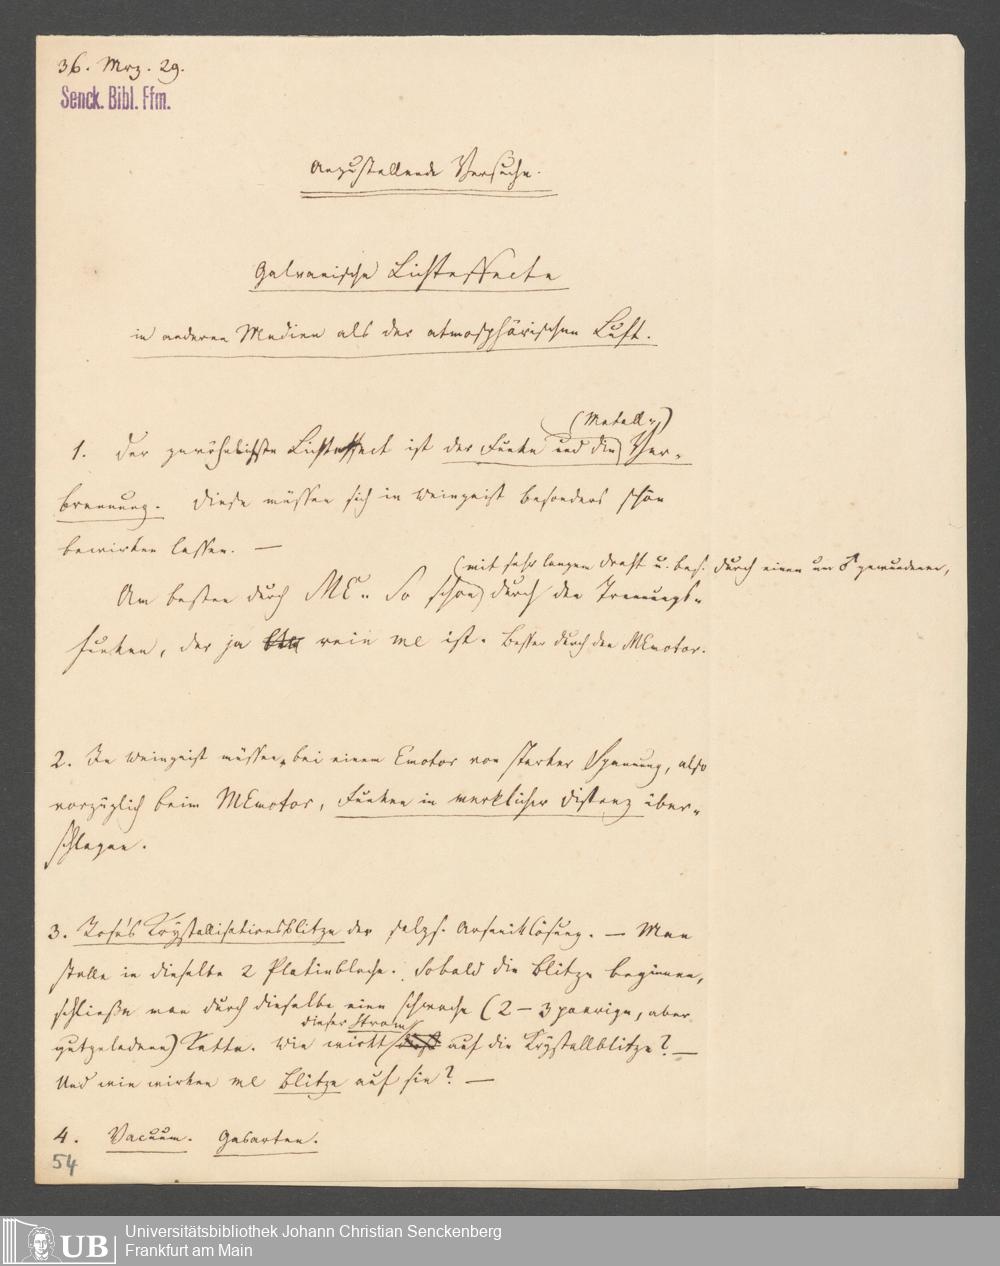 36. Mrz. 29.
Senck. Bibl. Ffm.
Anzustellende Versuche.
Galvanische Lichteffecte
in anderen Medien als der atmosphärischen Luft.
(Metall-)
1. Der gewöhnlichste Lichteffect ist der Funke und die Ver-
brennung. Diese müssen sich in Weingeist besonders schön
bewirken lassen. —
(mit sehr langem Draht u. bes. durch einen um ♂ gewundenen,
Am besten durch ME. So schön durch den Trennungs-
funken, der ja rein me ist. Besser durch den MEmotor.
2. In Weingeist müssen, bei einem Emotor von starker Spannung, also
vorzüglich beim MEmotor, Funken in merklicher Distanz über-
schlagen.
3. Rose's Krystallisationsblitze der salzs. Arseniklösung. — Man
stelle in dieselbe 2 Platinbleche. Sobald die Blitze beginnen,
schließe man durch dieselbe eine schwache (2 – 3 paarige, aber
dieser Strom
gutgeladene) Kette. Wie wirkt auf die Krystallblitze? —
Und wie wirken me Blitze auf sie? —
4. Vacuum. Gasarten.
54
UB
Universitätsbibliothek Johann Christian Senckenberg
Frankfurt am Main